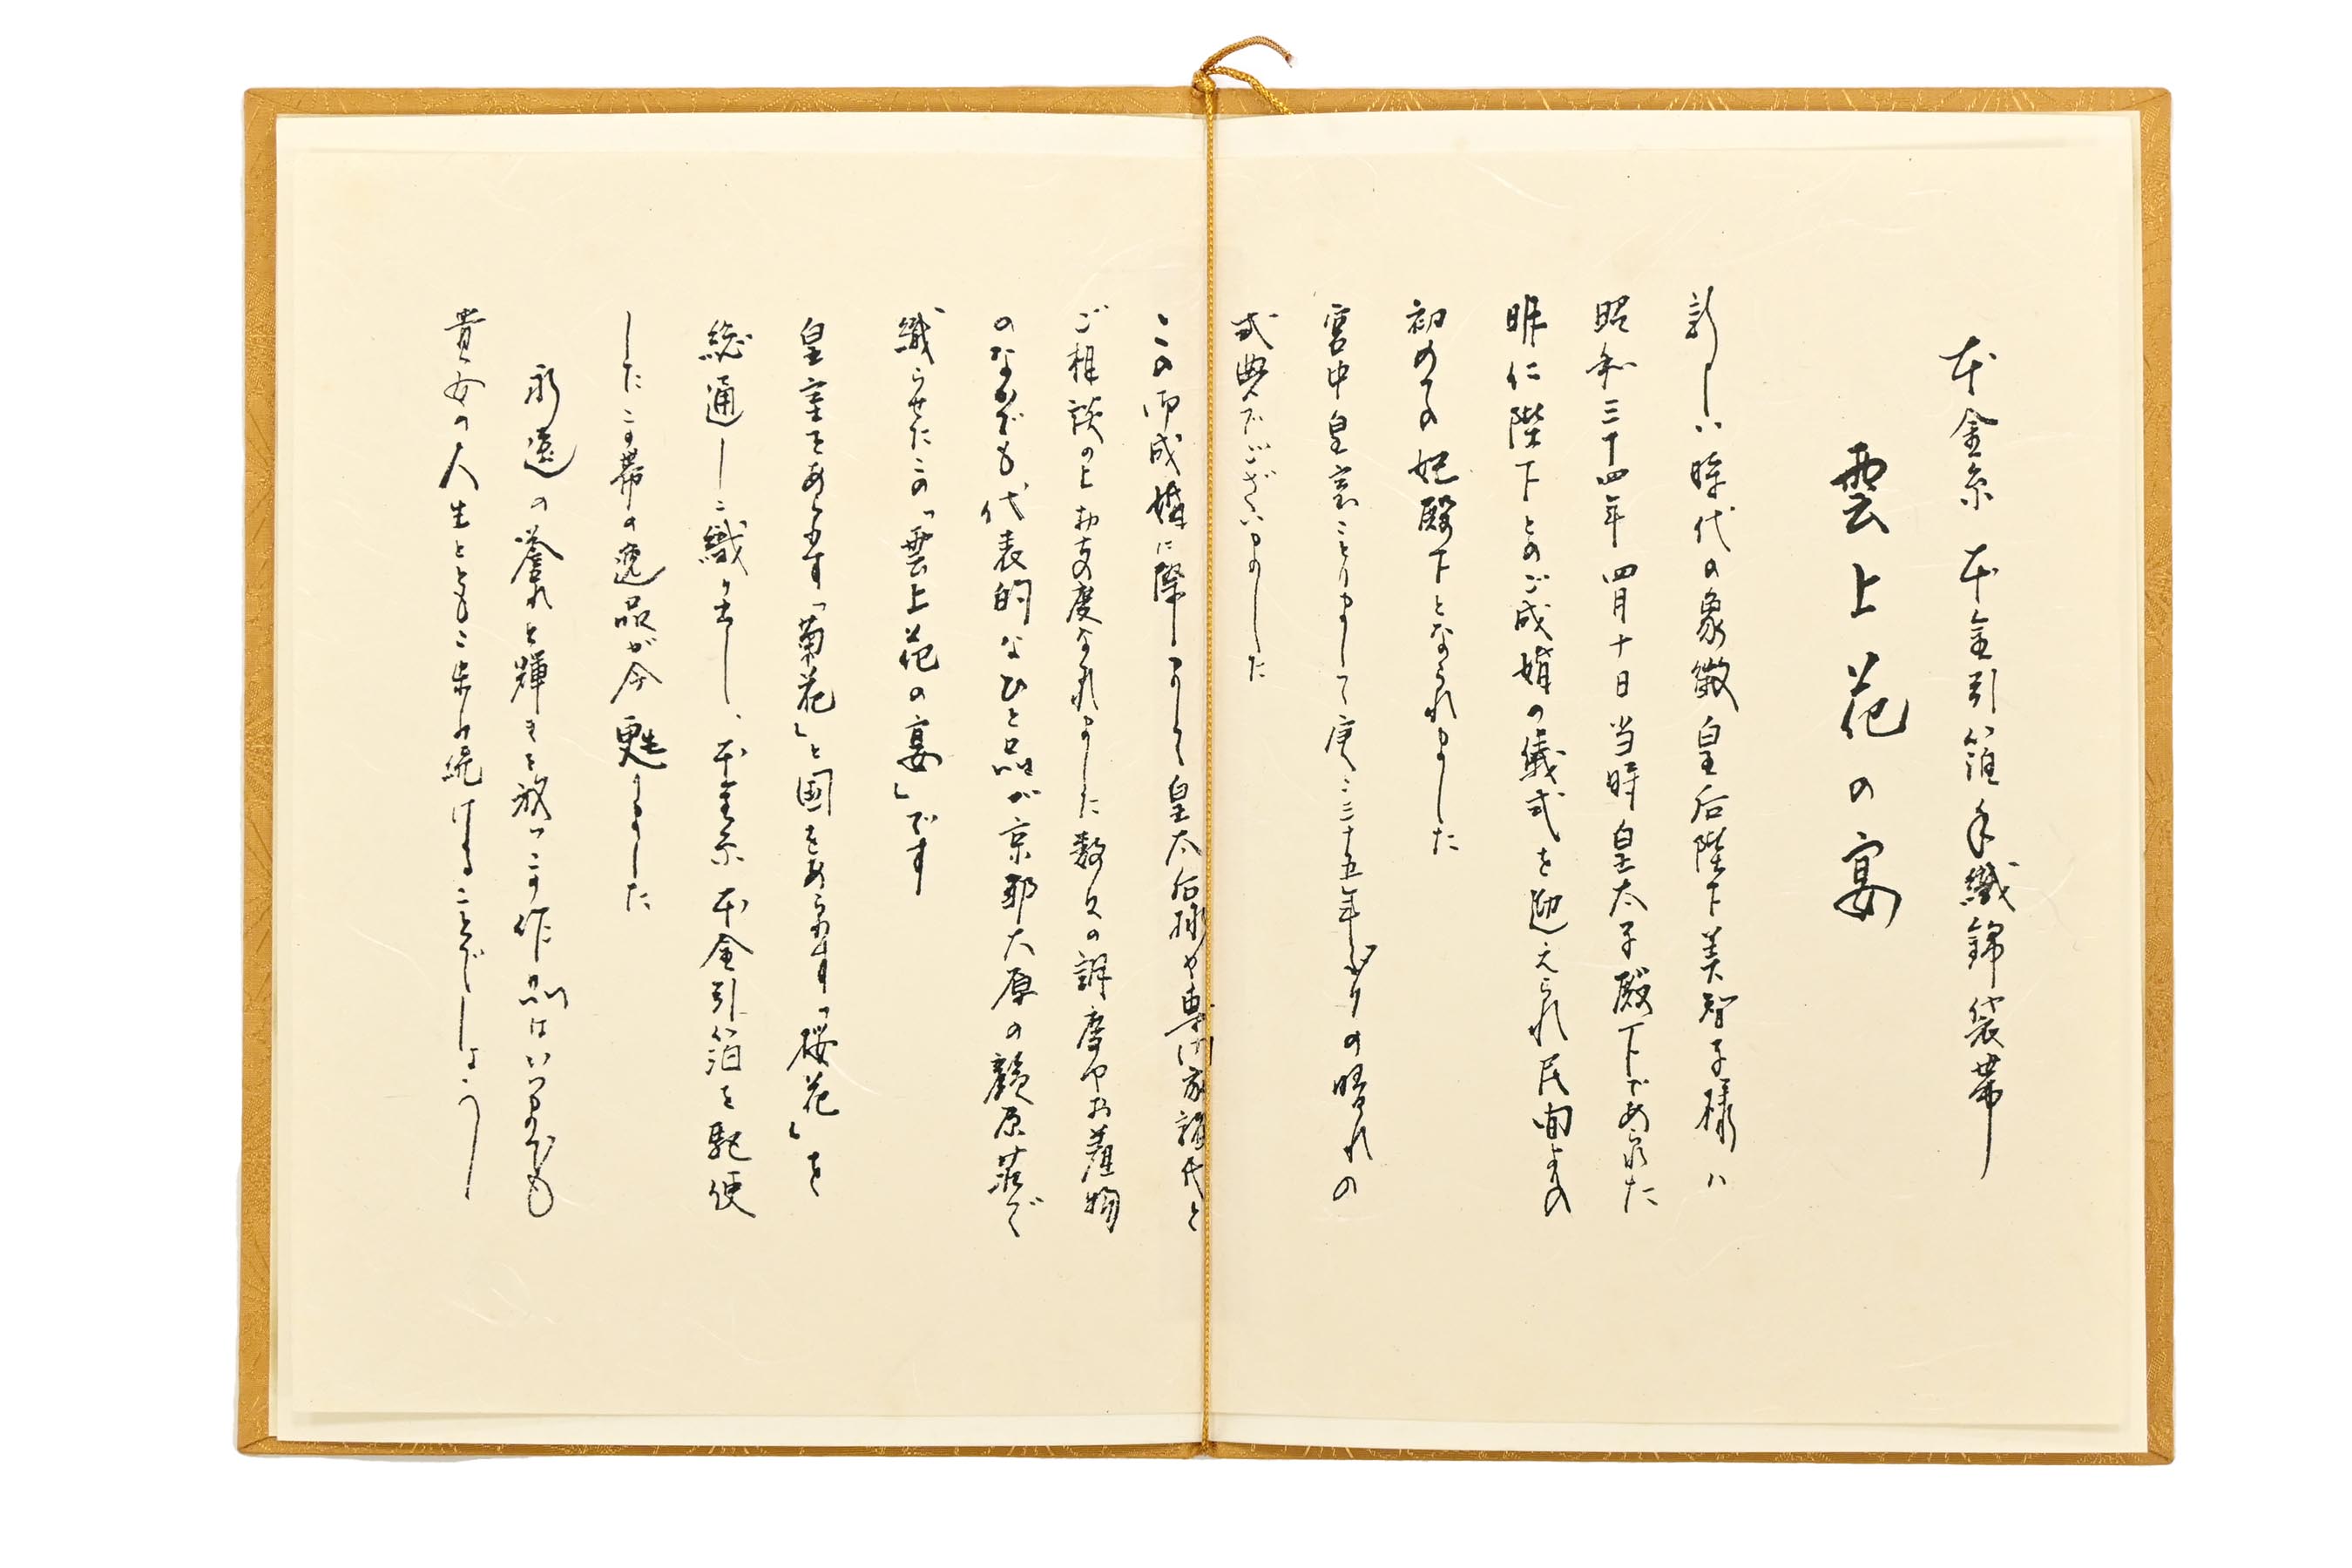 本金糸 本金引箔手織錦袋帯
雲上花の宴
新しい時代の象徴皇后陛下美智子様は
昭和三十四年四月十日当時皇太子殿下であられた
明仁陛下とのご成婚の儀式を迎えられ民間よりの
初めての妃殿下となられました
宮中皇室にとりまして実に三十五年ぶりの晴れの
式典でございました
この御成婚に際しまして皇太后様や専門家諸氏と
ご相談の上お支度なされました数々の調度やお着物
のなかでも代表的なひと品が京都大原の 原荘で
織らせたこの「雲上花の宴」です
皇室をあらわす「菊花」と国をあらわす「桜花」を
総通しに織り出し、本金糸本金引箔を駆使
したこの帯の逸品が今甦りました
永遠の誉れと輝きを放つこの作品はいつまでも
貴女の人生とともに歩み続けることでしょう